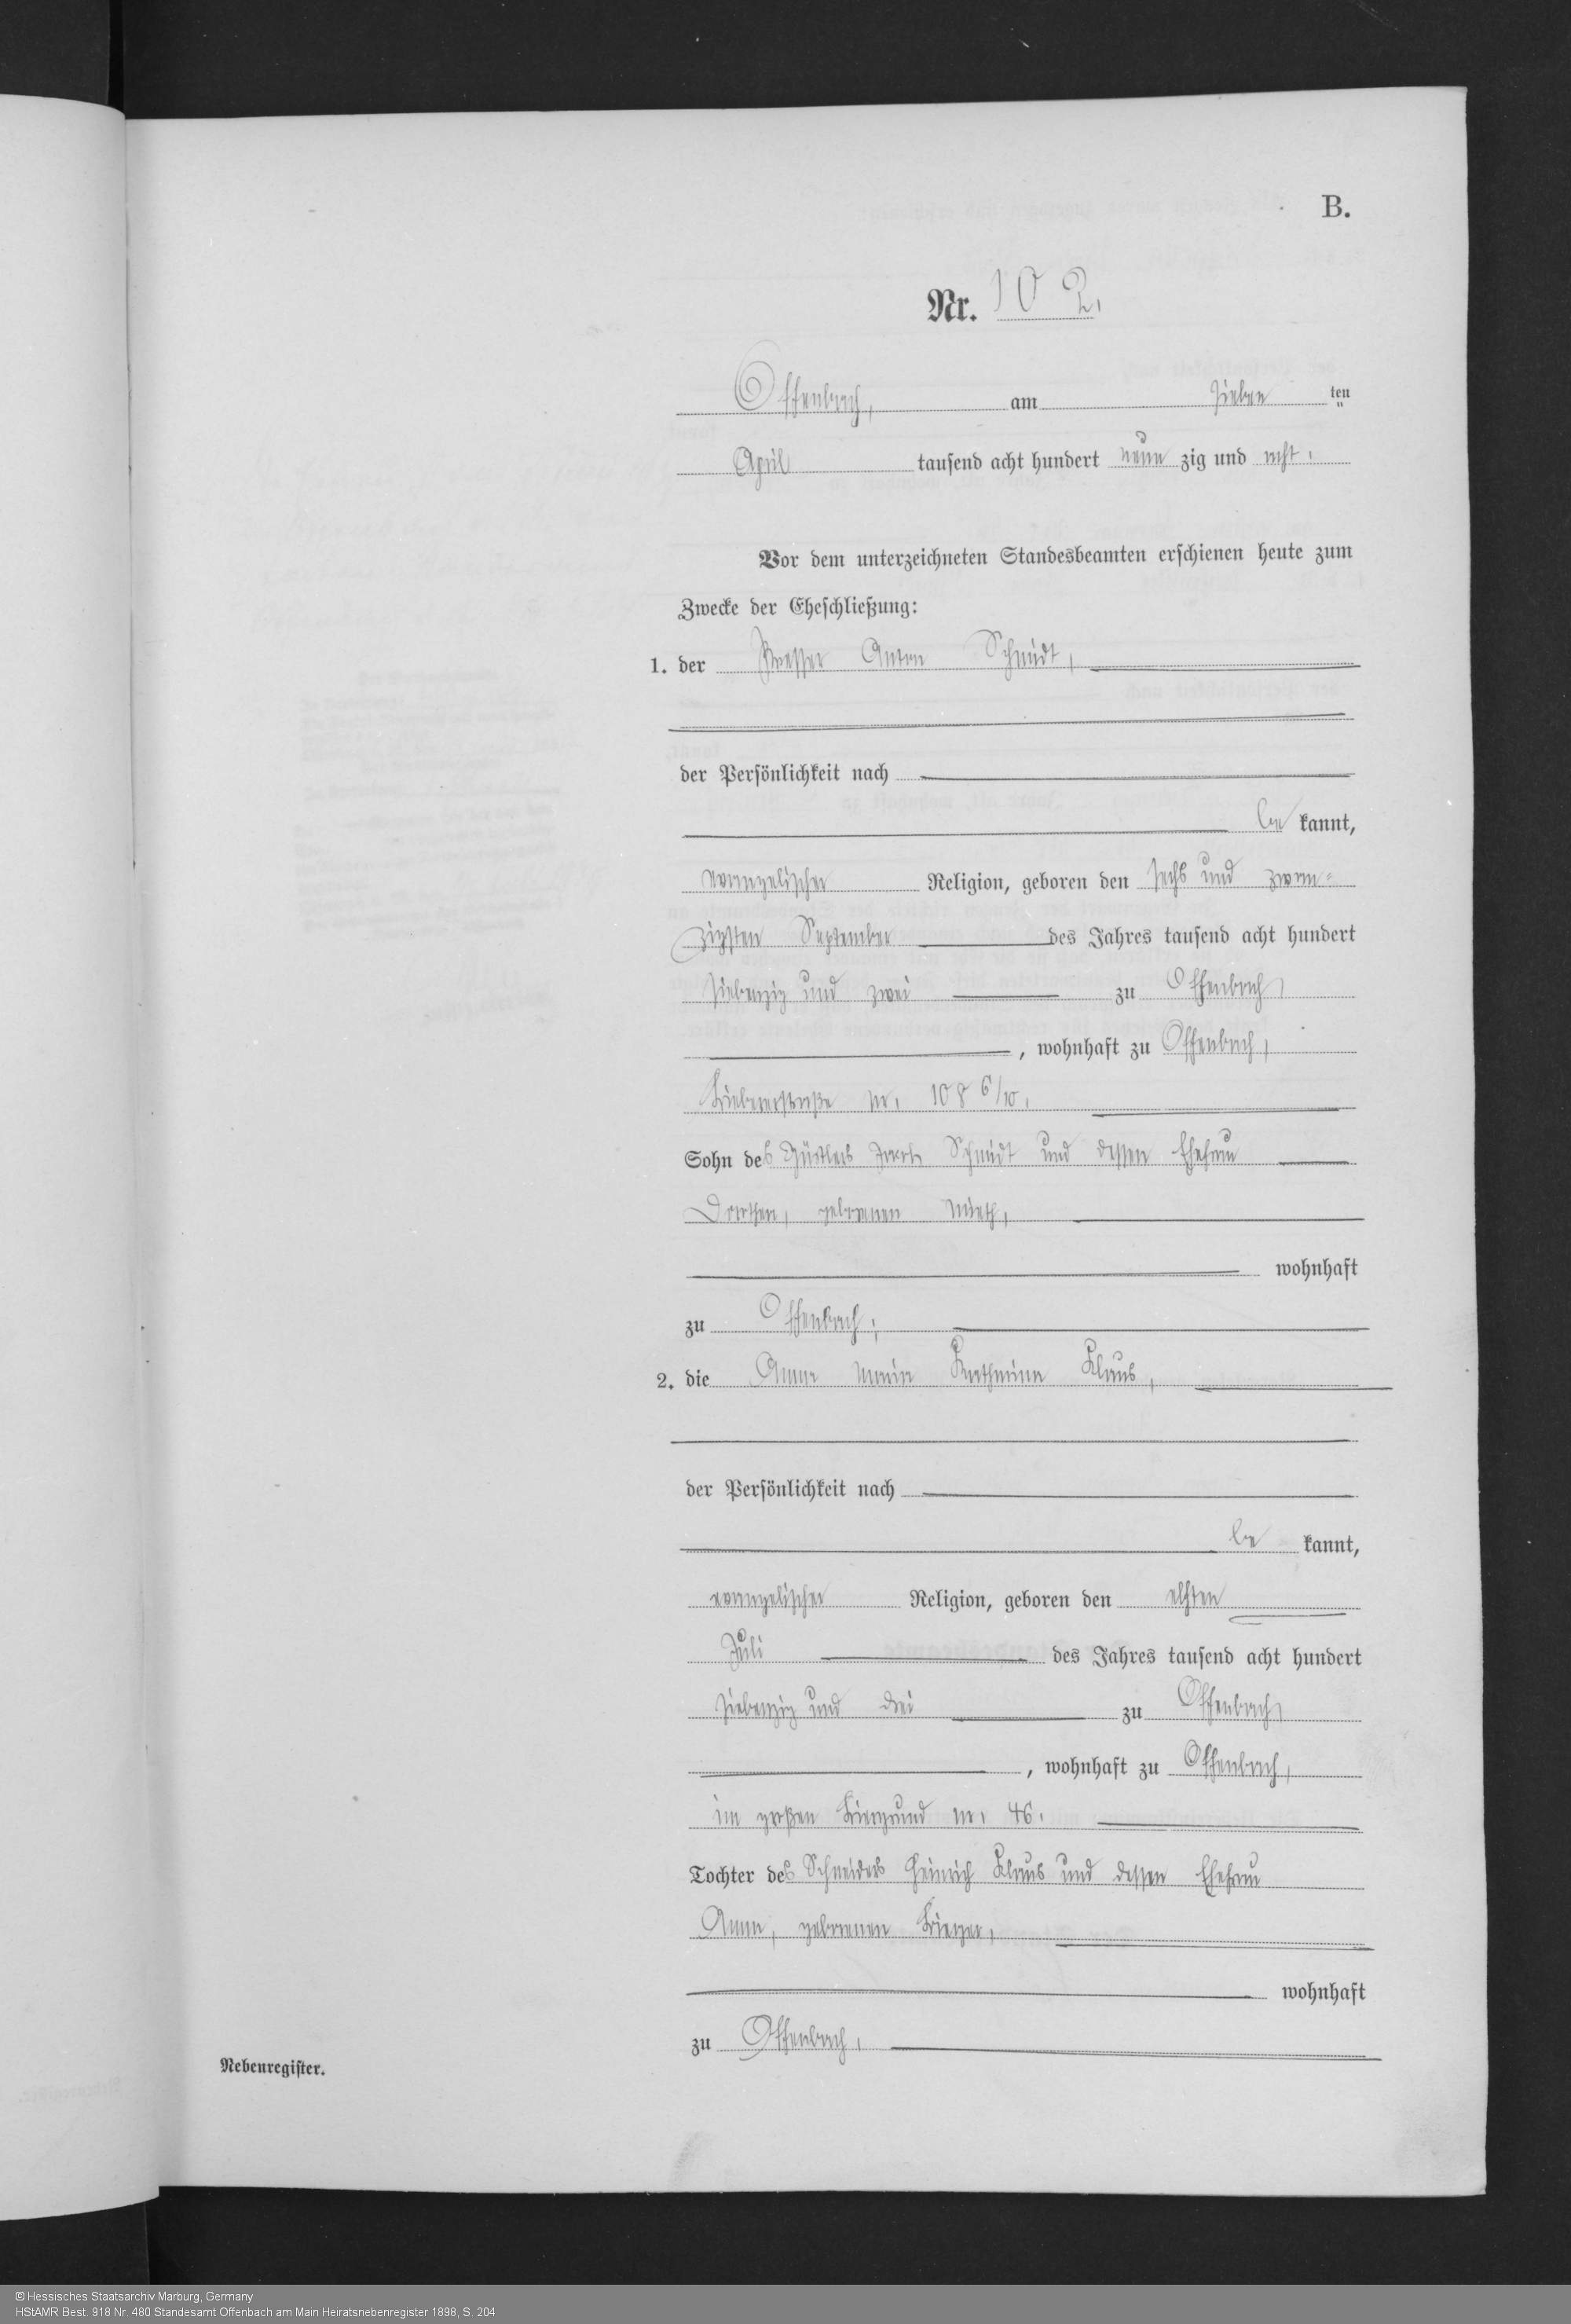 B.
Nr. 102.
Offenbach, am sieben ten
April tausend acht hundert neun zig und acht.
Vor dem unterzeichneten Standesbeamten erschienen heute zum
Zwecke der Eheschließung:
1. der Presser Anton Schmidt,
der Persönlichkeit nach
be kannt,
evangelischer Religion, geboren den sechs und zwan-
zigsten September des Jahres tausend acht hundert
siebenzig und zwei zu Offenbach,
, wohnhaft zu Offenbach,
Biebererstraße Nr. 108 6/10.
Sohn des Gürtlers Jacob Schmidt und dessen Ehefrau
Dorothea, geborenen
wohnhaft
zu Offenbach;
2. die Anna Maria Katharina Klaus,
der Persönlichkeit nach
be kannt,
evangelischer Religion, geboren den elften
Juli des Jahres tausend acht hundert
siebenzig und drei zu Offenbach,
, wohnhaft zu Offenbach,
im großen Biergrund Nr. 46.
Tochter des Schneiders Heinrich Klaus und dessen Ehefrau
Anna, geborenen
wohnhaft
zu Offenbach,
Nebenregister.
© Hessisches Staatsarchiv Marburg, Germany
HStAMR Best. 918 Nr. 480 Standesamt Offenbach am Main Heiratsnebenregister 1898, S. 204